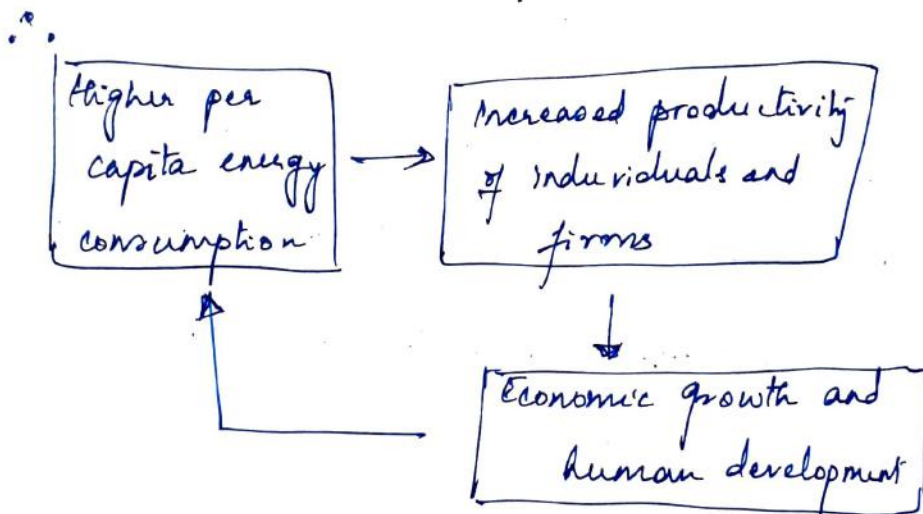 ∴
Higher per
capita energy
consumption
Increased productivity
of individuals and
firms
Economic growth and
human development